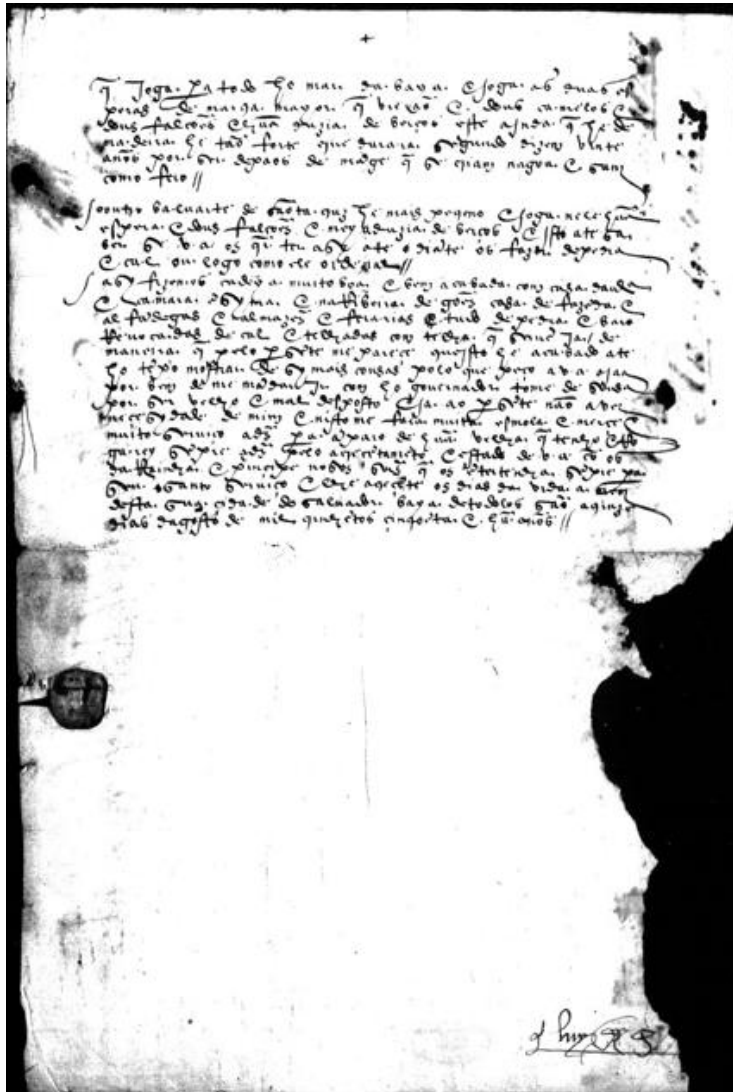 +
q̃ Joga. pa todo ho mar. da baya. E joga. as duas es
peras de marqua mayor. q̃ vierão E. dous camelos E
dous falcões E hũa duzia. de berços este ainda. q̃ he de
madeira. he tão forte que durara. segundo dizem vinte
anos por ser de paos de mãge q̃ se criam nagoa. E sam
como fero //
ho outro baluarte de santa. cruz he mais pequeno E joga. nele hũa
espera. E dous falcões. E meya duzia de berços E isto ate sa
ber se v. a. os q̃r ter asy ate o diãte os fazer de pedra
E cal ou logo como ele ordenar //
asy fizemos cadeya muito boa. E bem acabada. com casa. daude
E camara. E na Ribeira. de goes casa. de fazeda. E
alfandegas E almazes E ferarias E tudo de pedra. E baro
Revocadas de cal E telhadas com telha. q̃ de
maneira. q̃ pelo presẽte me parece que isto he acabado ate
ho tẽpo mostrar. de sy mais cousas polo que peço a v. a. aja
por bem de me mãdar Ir com ho governador tome de sousa
por ser velho E mal desposto E ja. ao presẽte não aver
necesydade de mim E nisto me fara. muita. esmola. E merce E
muito serviço a ds pa. ẽparo de hũa. velha. q̃ tenho E Ro
garey sẽpre a ds pelo acrecẽtamẽto E estado de v. a. cõ os
da Rainha. E principe nosos srs q̃ os sẽpre pa
seu santo serviço E lhe acrecẽte os dias da vida. a. men
desta. sua. cidade do salvador baya. de todolos sãtos a quinze
dias dagosto de mil quinhẽtos cinqoẽta. E hũ anos //
luis